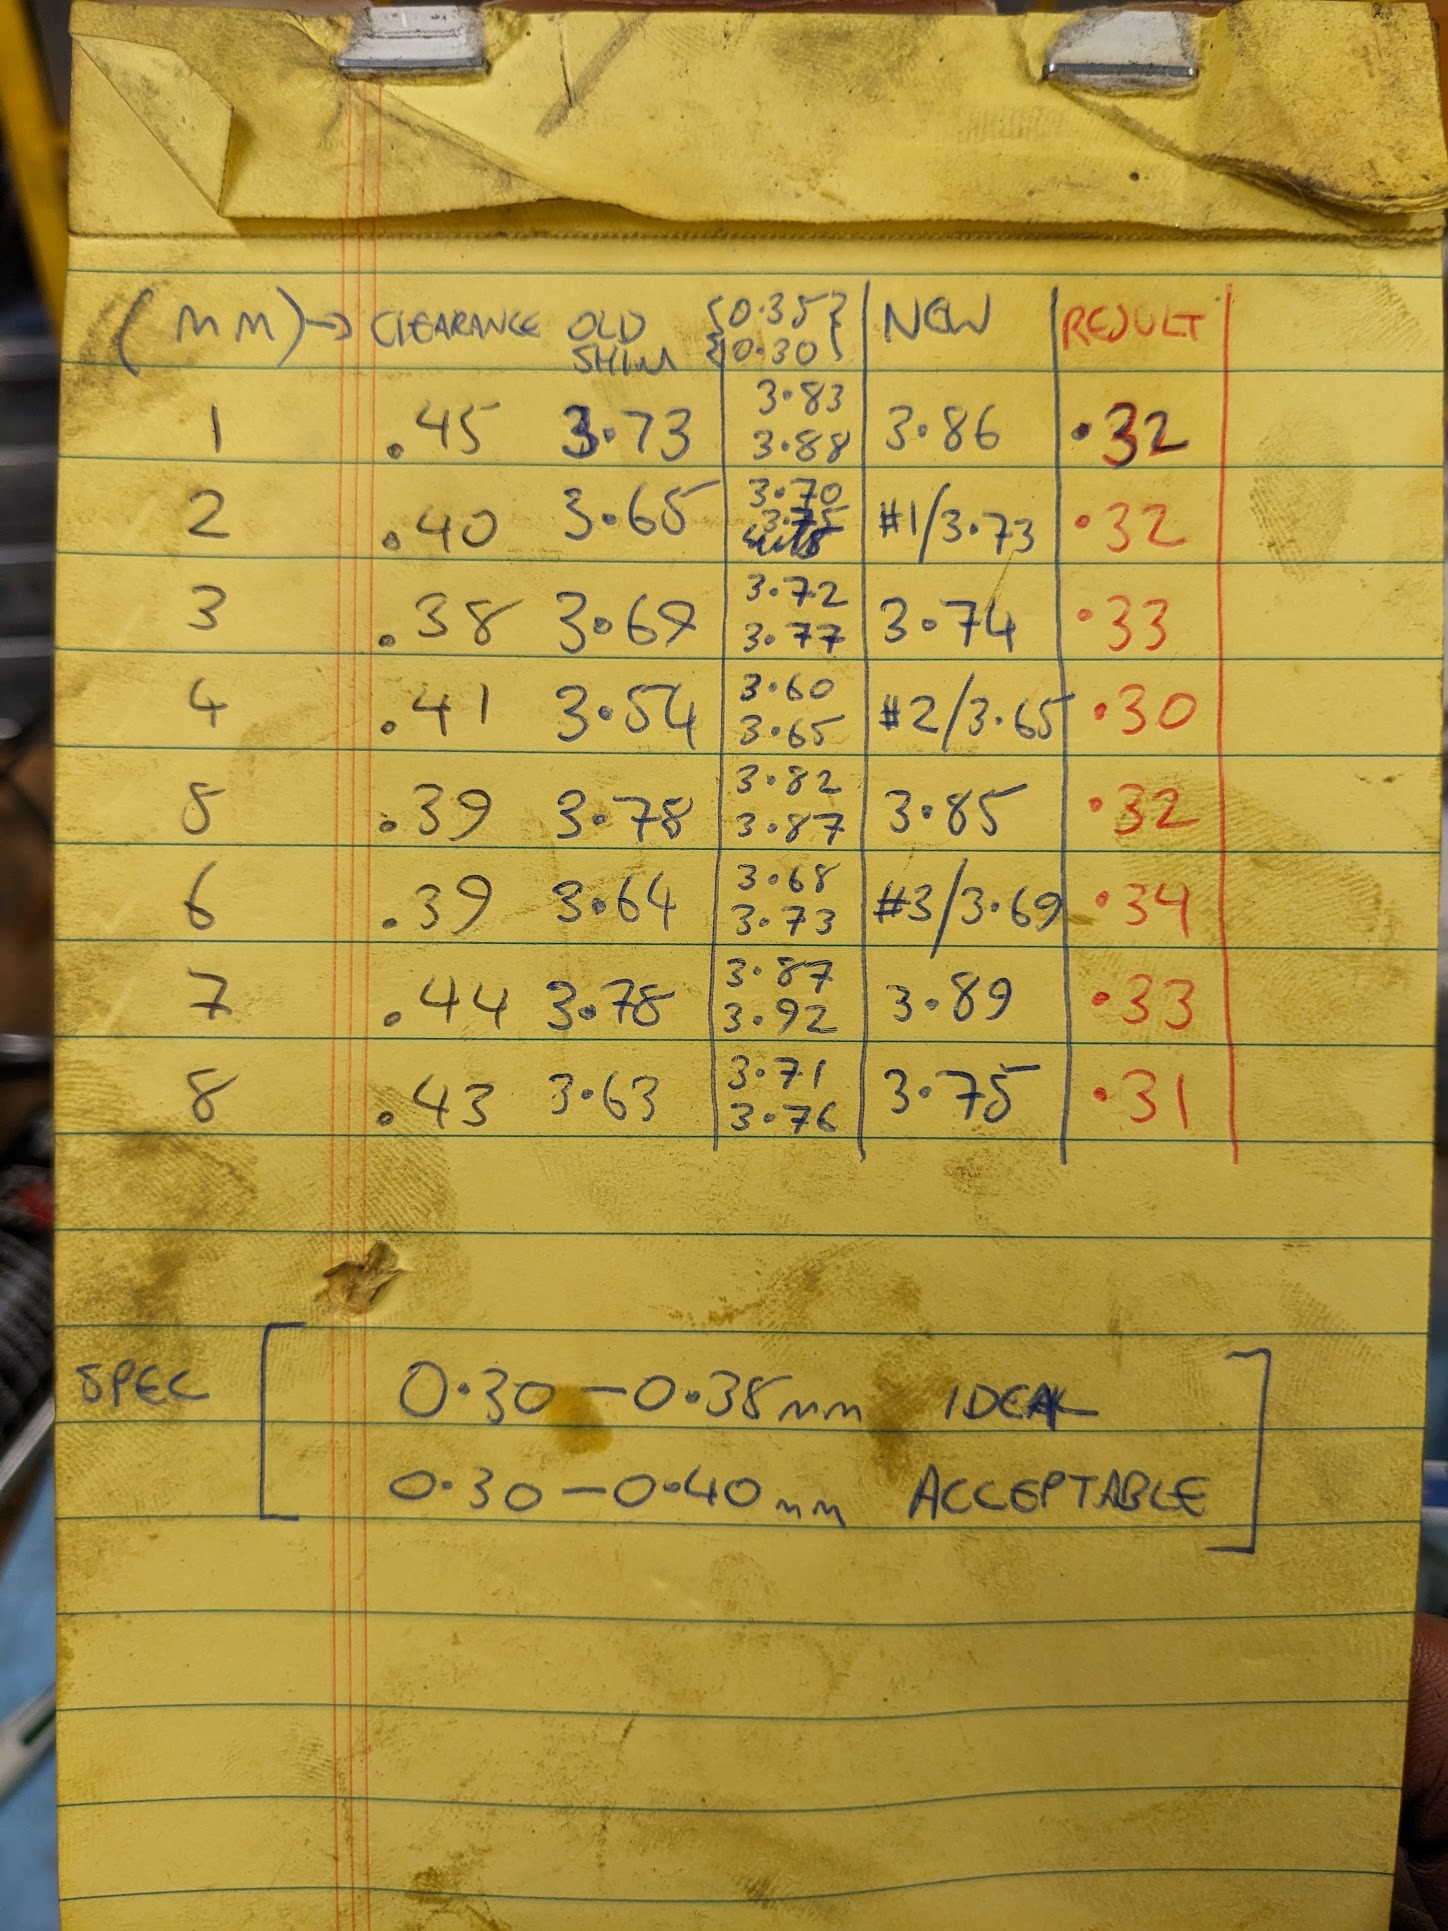 (mm)→ CLEARANCE OLD SHIM {0.35} {0.30} NEW RESULT
1 .45 3.73 3.83 3.88 3.86 .32
2 .40 3.65 3.70 3.75 #1/3.73 .32
3 .38 3.69 3.72 3.77 3.74 .33
4 .41 3.54 3.60 3.65 #2/3.65 .30
5 .39 3.78 3.82 3.87 3.85 .32
6 .39 3.64 3.68 3.73 #3/3.69 .34
7 .44 3.78 3.87 3.92 3.89 .33
8 .43 3.63 3.71 3.76 3.75 .31
SPEC [ 0.30 – 0.35mm IDEAL
0.30 – 0.40mm ACCEPTABLE ]